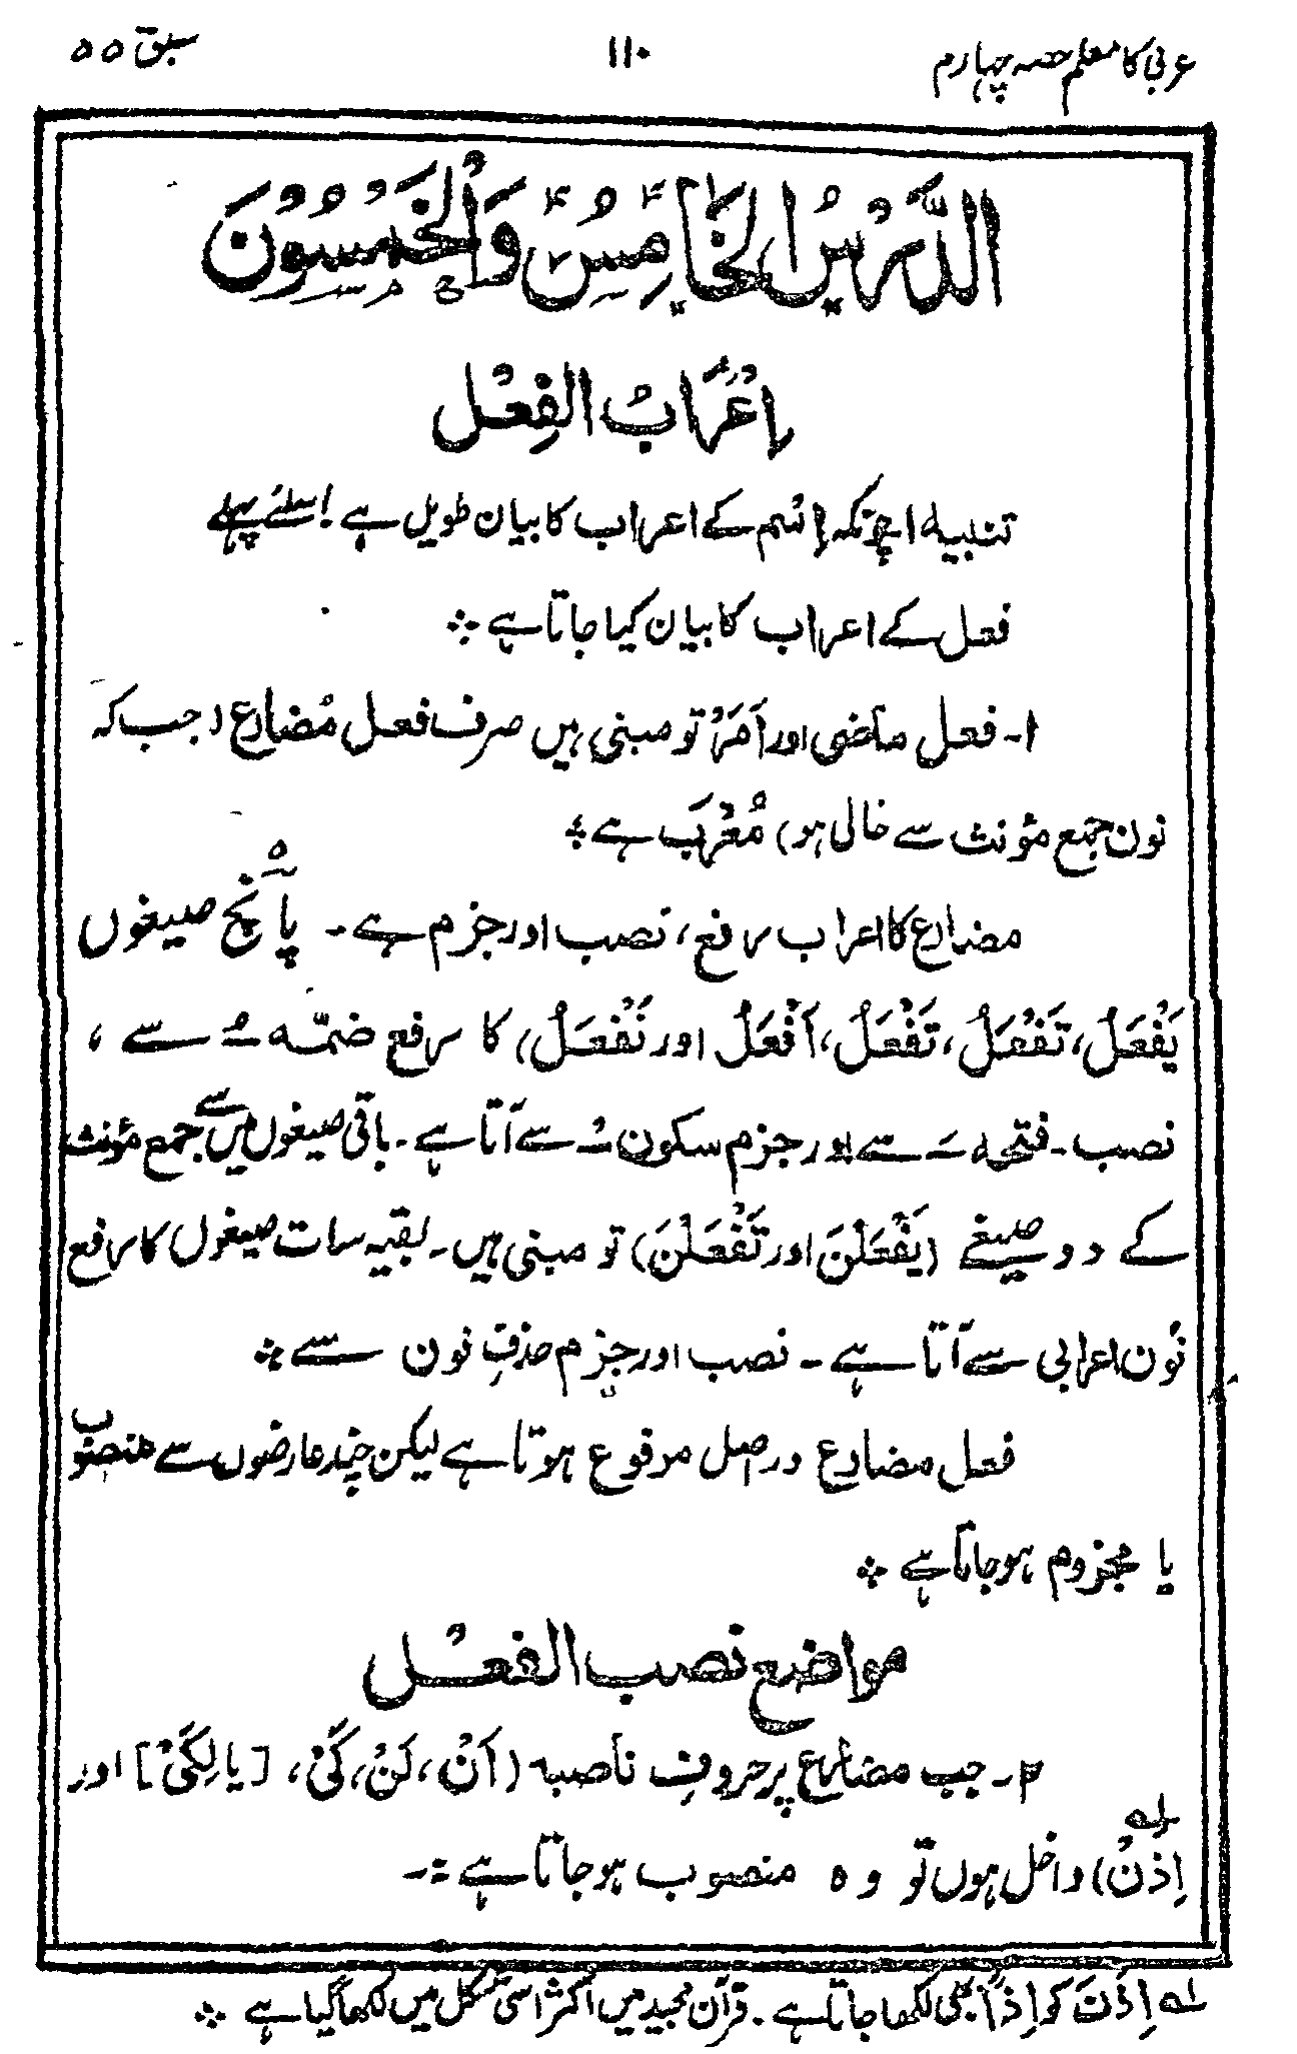 عربی کا معلم حصہ چہارم
۱۱۰
سبق ۵۵
الدَّرْسُ الْخَامِسُ وَالْخَمْسُوْنَ
اِعْرَابُ الْفِعْل
تنبیہ ۱ چونکہ اِسْم کے اعراب کا بیان طویل ہے اسلئے پہلے
فعل کے اعراب کا بیان کیا جاتا ہے ؞
۱۔ فعل ماضی اور اَمْر تو مبنی ہیں صرف فعل مُضارع (جب کہ
نون جمع مؤنث سے خالی ہو) مُعْرَب ہے ؞
مضارع کا اعراب رفع، نصب اور جزم ہے۔ پانچ صیغوں
یَفْعَلُ، تَفْعَلُ، تَفْعَلُ، اَفْعَلُ اور نَفْعَلُ) کا رفع ضمّہ ـُ سے ،
نصب۔ فتحہ ـَ سے اور جزم سکون ـْ سے آتا ہے۔ باقی صیغوں میں سے جمع مؤنث
کے دو صیغے (یَفْعَلْنَ اور تَفْعَلْنَ) تو مبنی ہیں۔ بقیہ سات صیغوں کا رفع
نُون اعرابی سے آتا ہے ۔ نصب اور جزم حذفِ نون سے ؞
فعل مضارع دراصل مرفوع ہوتا ہے لیکن چند عارضوں سے منصوب
یا مجزوم ہو جاتا ہے ؞
مواضع نصب الفعْل
۲۔ جب مضارع پر حروفِ ناصبہ (اَنْ، لَنْ، کَیْ، [یا لِکَیْ] اور
اِذَنْ) لہ داخل ہوں تو وہ منصوب ہو جاتا ہے :۔
لہ اِذَنْ کو اِذًا بھی لکھا جاتا ہے ۔ قرآن مجید میں اکثر اسی شکل میں لکھا گیا ہے ؞